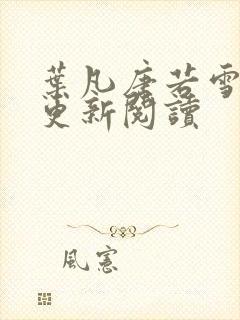 葉凡唐若雪
更新閱讀
風憲